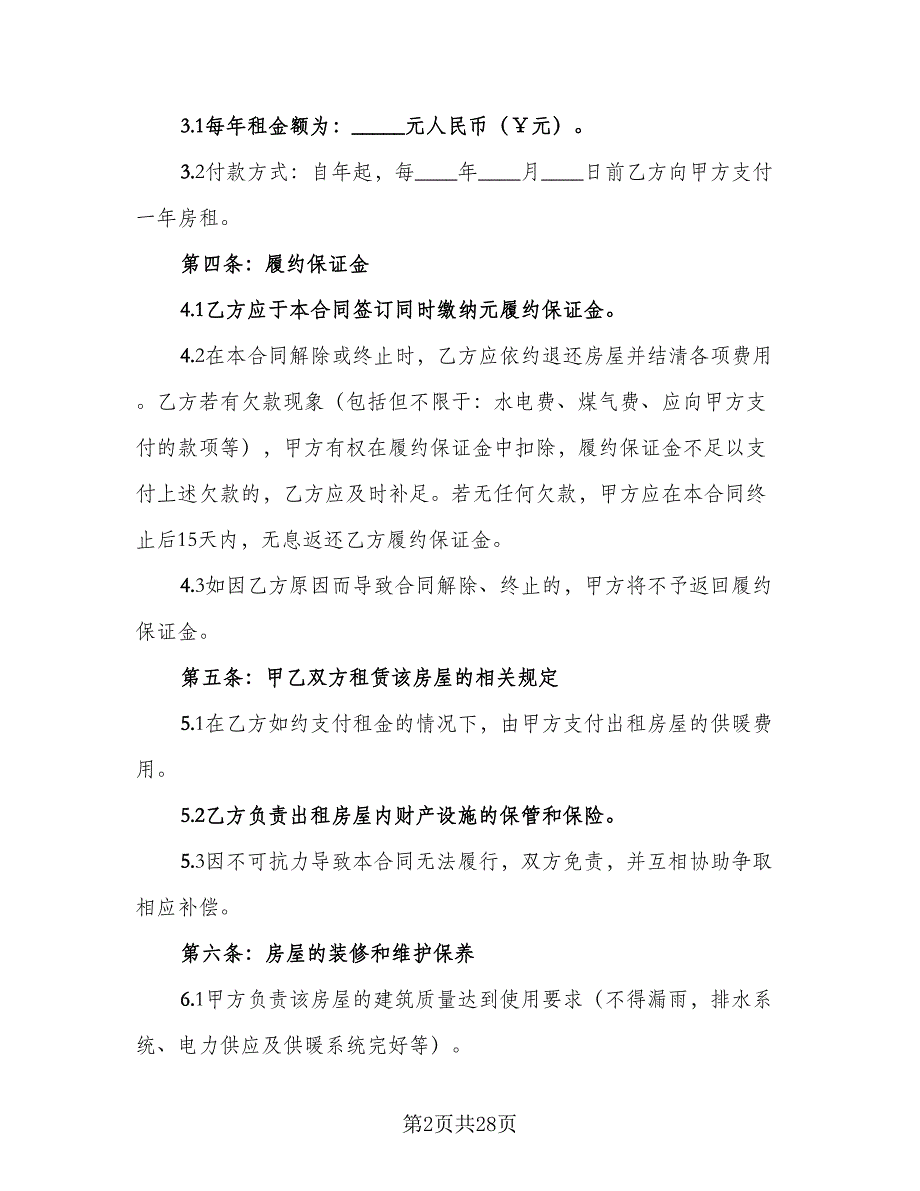 3.1每年租金额为：_____元人民币（￥元）。
3.2付款方式：自年起，每____年____月____日前乙方向甲方支付
一年房租。
第四条：履约保证金
4.1乙方应于本合同签订同时缴纳元履约保证金。
4.2在本合同解除或终止时，乙方应依约退还房屋并结清各项费用
。乙方若有欠款现象（包括但不限于：水电费、煤气费、应向甲方支
付的款项等），甲方有权在履约保证金中扣除，履约保证金不足以支
付上述欠款的，乙方应及时补足。若无任何欠款，甲方应在本合同终
止后15天内，无息返还乙方履约保证金。
4.3如因乙方原因而导致合同解除、终止的，甲方将不予返回履约
保证金。
第五条：甲乙双方租赁该房屋的相关规定
5.1在乙方如约支付租金的情况下，由甲方支付出租房屋的供暖费
用。
5.2乙方负责出租房屋内财产设施的保管和保险。
5.3因不可抗力导致本合同无法履行，双方免责，并互相协助争取
相应补偿。
第六条：房屋的装修和维护保养
6.1甲方负责该房屋的建筑质量达到使用要求（不得漏雨，排水系
统、电力供应及供暖系统完好等）。
第2页共28页